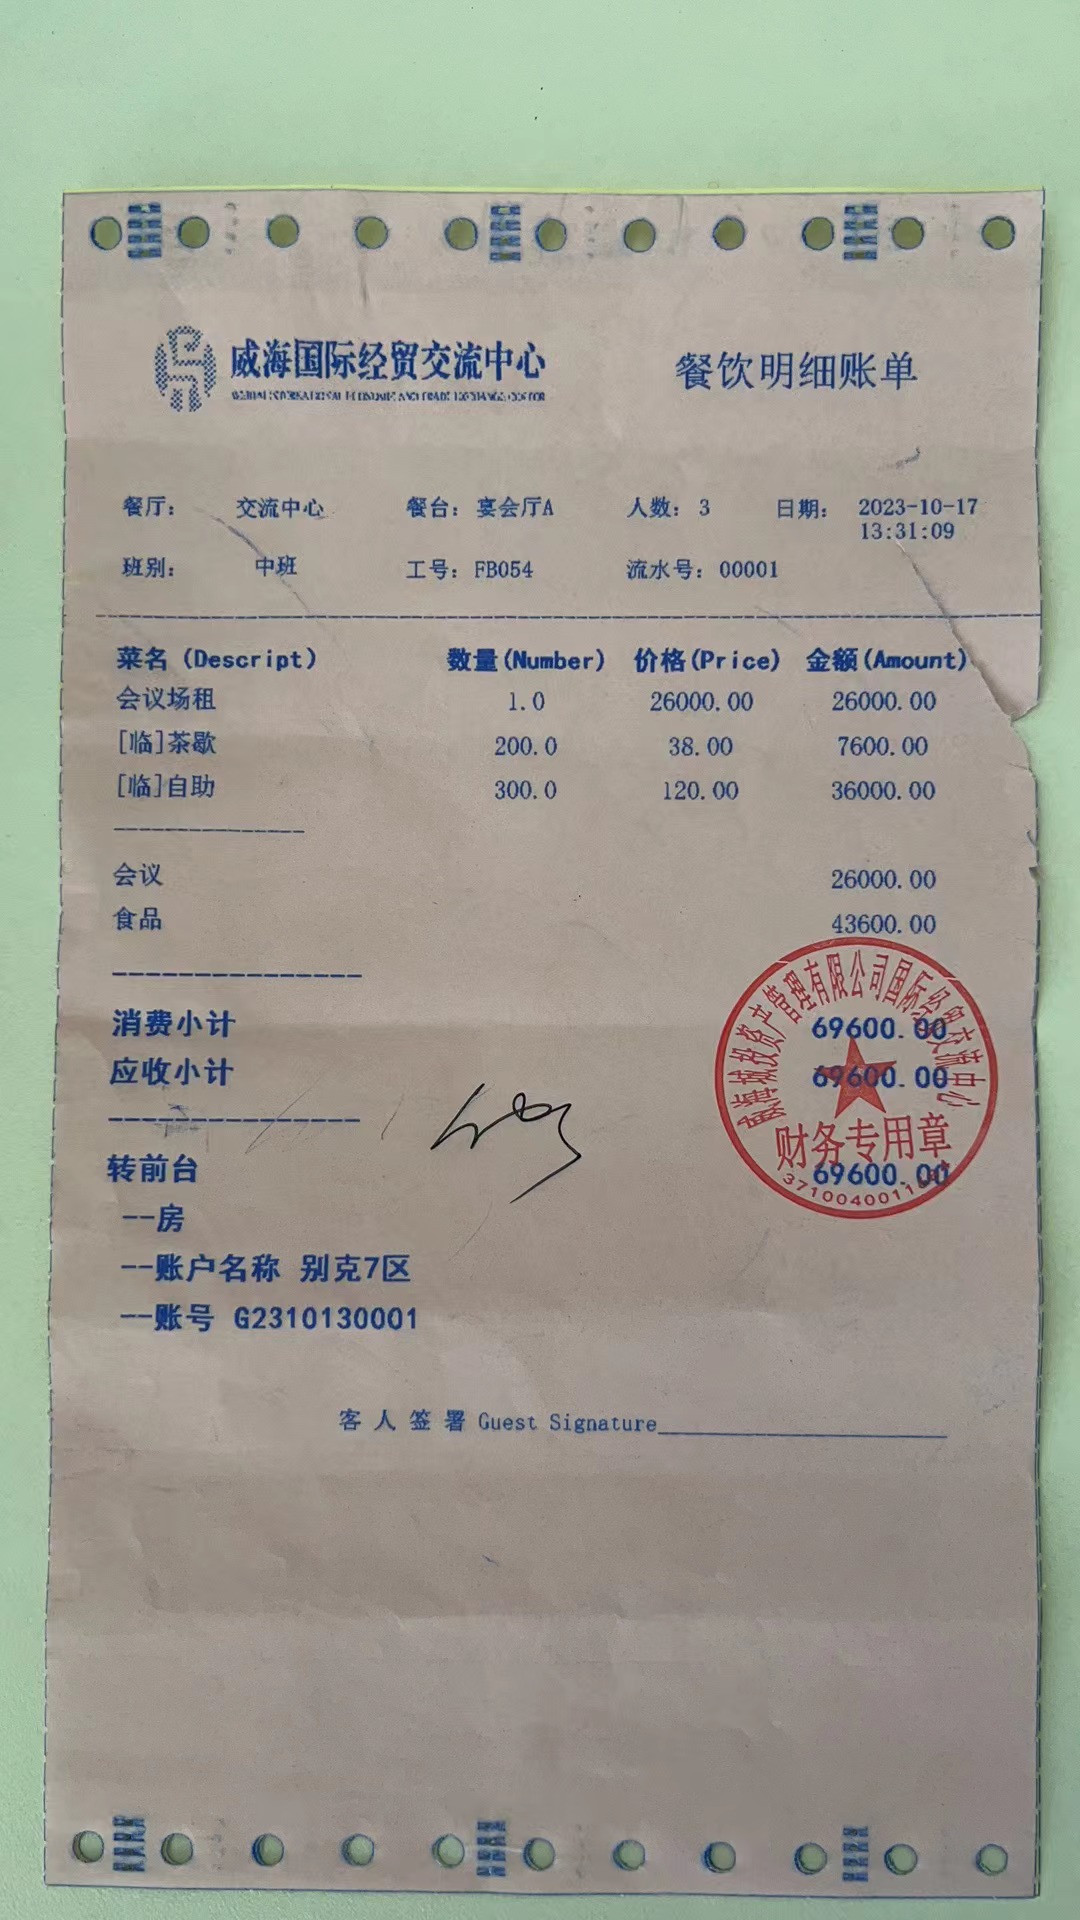 威海国际经贸交流中心
WEIHAI INTERNATIONAL ECONOMIC AND TRADE EXCHANGE CENTER
餐饮明细账单
餐厅： 交流中心 餐台：宴会厅A 人数：3 日期： 2023-10-17
13:31:09
班别： 中班 工号：FB054 流水号：00001
菜名（Descript） 数量(Number) 价格(Price) 金额(Amount)
会议场租 1.0 26000.00 26000.00
[临]茶歇 200.0 38.00 7600.00
[临]自助 300.0 120.00 36000.00
会议 26000.00
食品 43600.00
消费小计 69600.00
应收小计 69600.00
转前台 69600.00
--房
--账户名称 别克7区
--账号 G2310130001
威海城投资产管理有限公司国际经贸交流中心
财务专用章
客人签署 Guest Signature